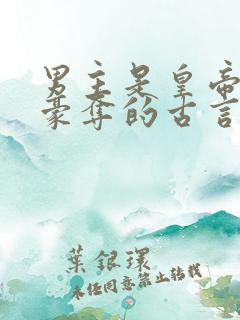 男主是皇帝
豪夺的古言
葉銀環
未经同意禁止转载